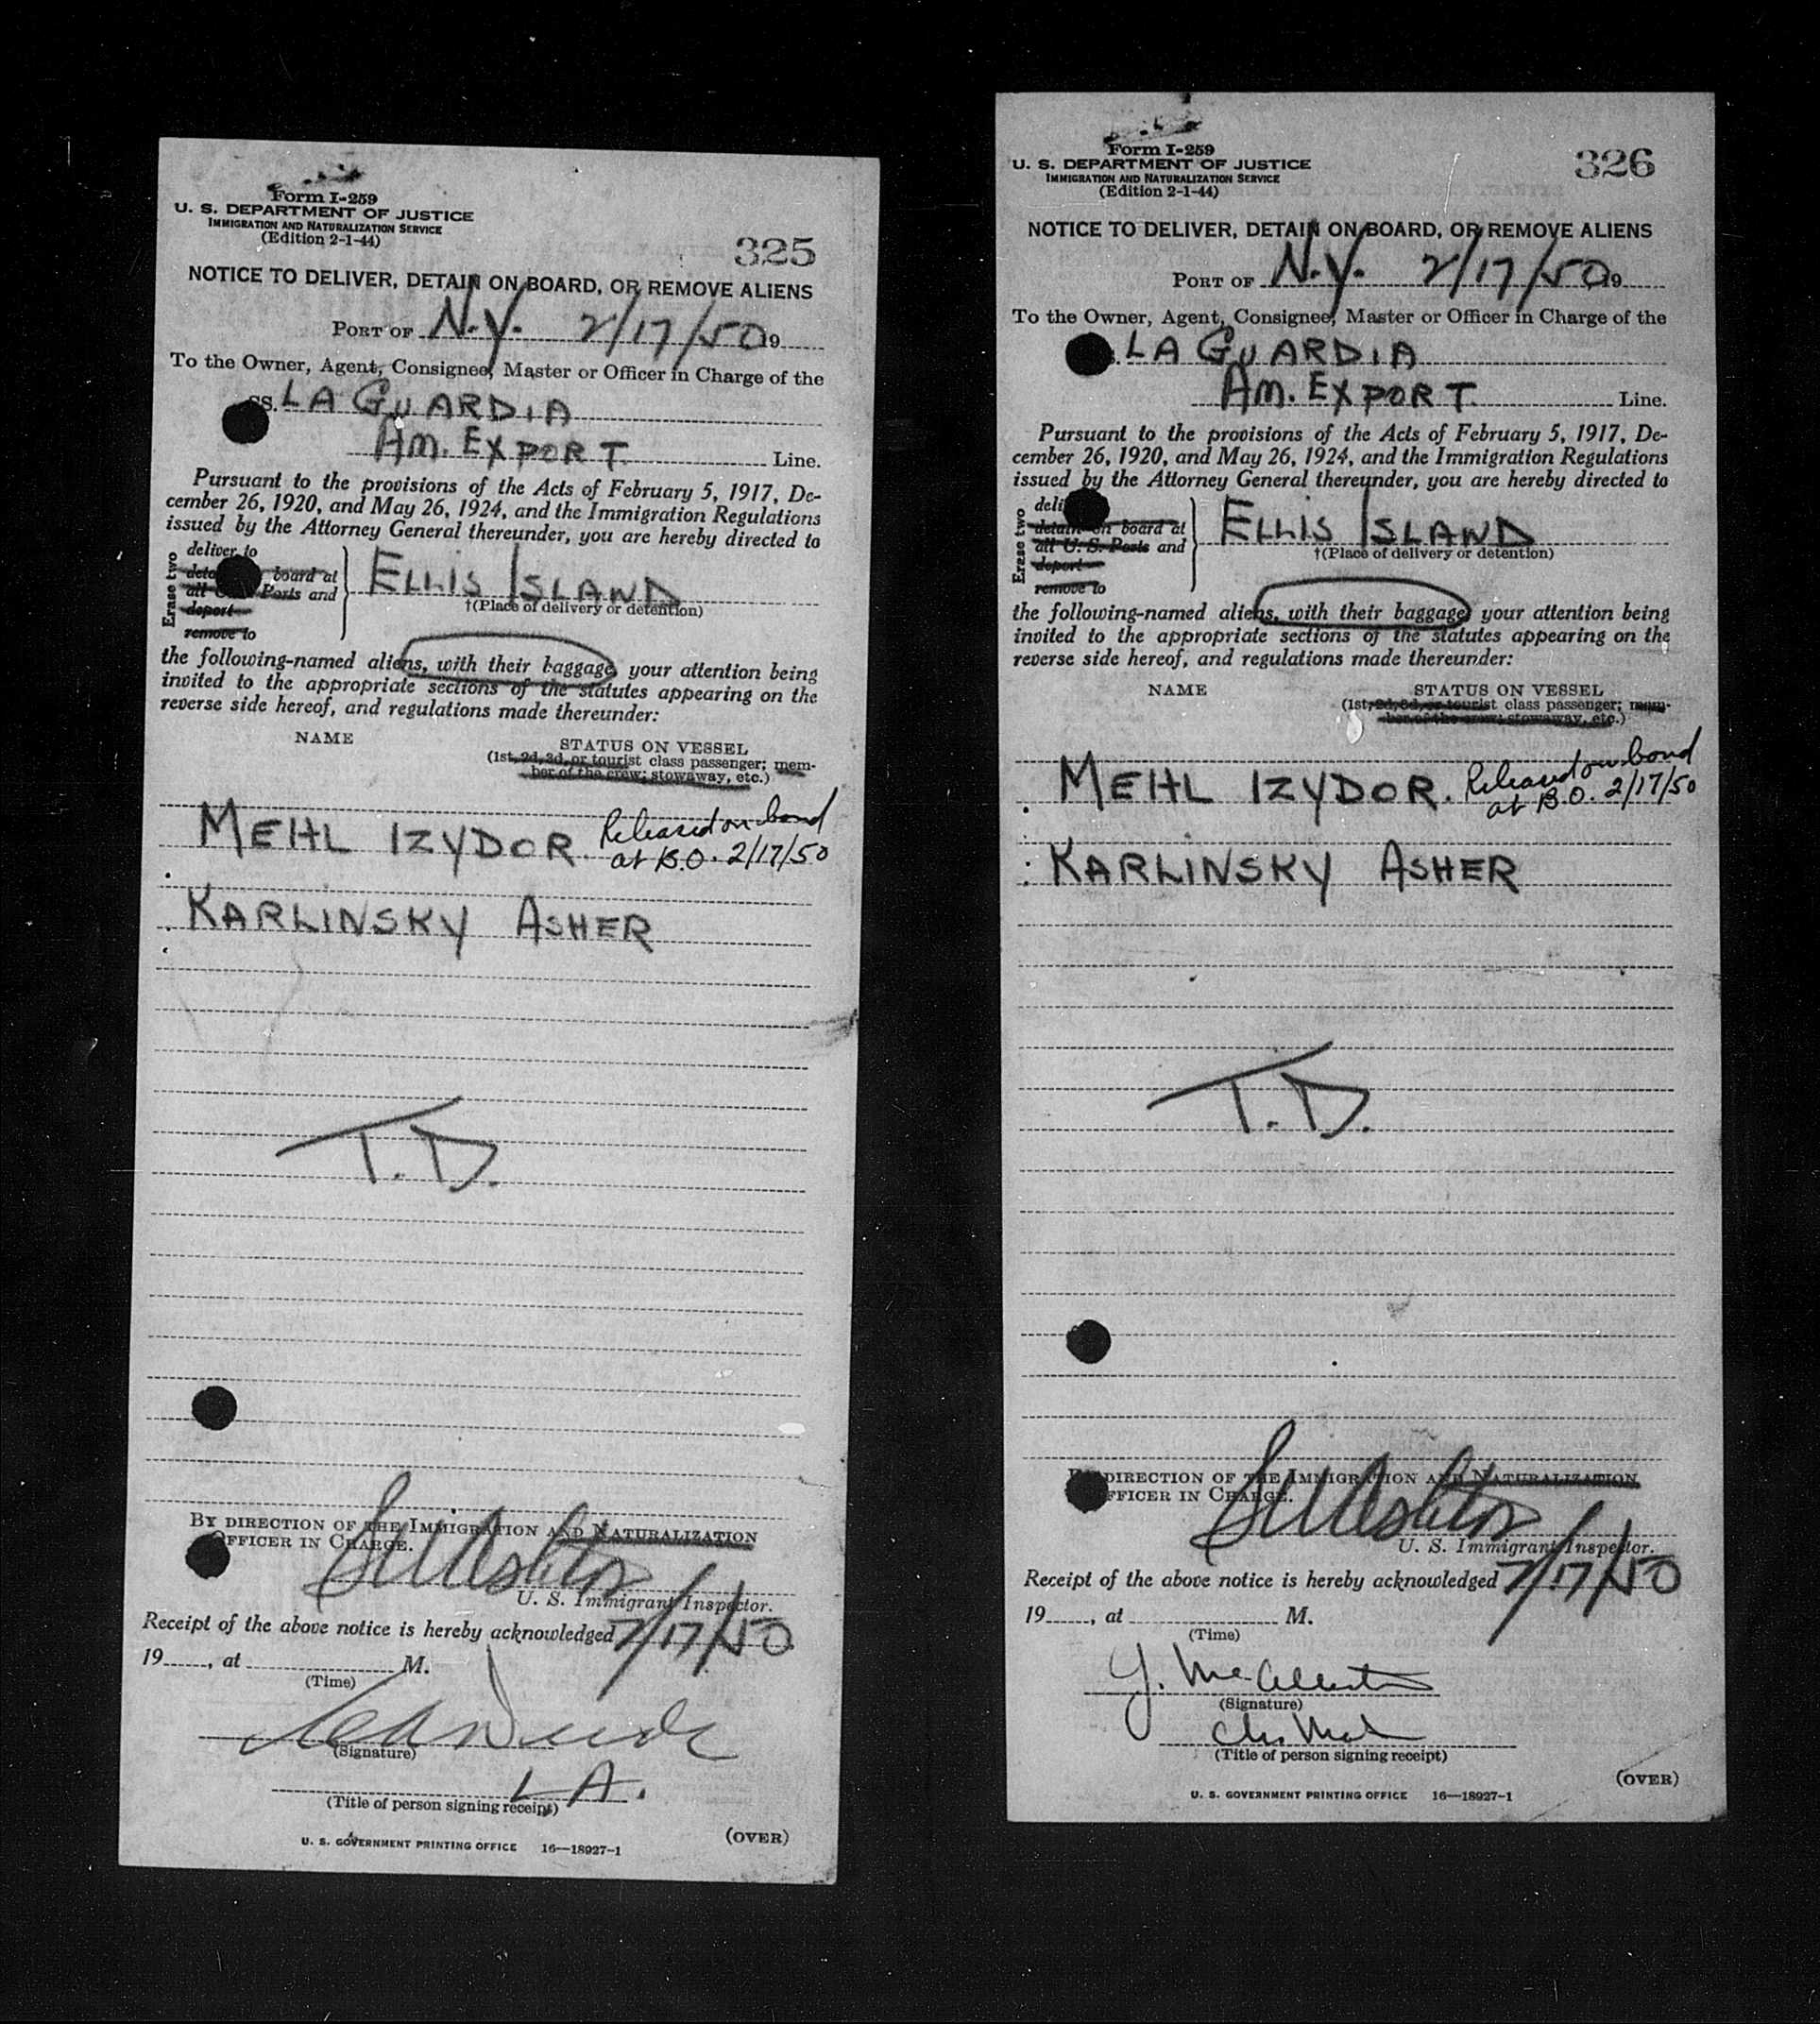 Form I-259
U. S. DEPARTMENT OF JUSTICE
IMMIGRATION AND NATURALIZATION SERVICE
(Edition 2-1-44)
325
NOTICE TO DELIVER, DETAIN ON BOARD, OR REMOVE ALIENS
PORT OF N.Y. 2/17/50 19
To the Owner, Agent, Consignee, Master or Officer in Charge of the
SS. LA GUARDIA
AM. EXPORT Line.
Pursuant to the provisions of the Acts of February 5, 1917, De-
cember 26, 1920, and May 26, 1924, and the Immigration Regulations
issued by the Attorney General thereunder, you are hereby directed to
Erase two
deliver to
board at
all U. S. Ports and
deport
remove to
ELLIS ISLAND
†(Place of delivery or detention)
the following-named aliens, with their baggage, your attention being
invited to the appropriate sections of the statutes appearing on the
reverse side hereof, and regulations made thereunder:
NAME STATUS ON VESSEL
(1st, 2d, 3d, or tourist class passenger; mem-
ber of the crew; stowaway, etc.)
MEHL IZYDOR. Released on bond
at B.O. 2/17/50
KARLINSKY ASHER
T.D.
BY DIRECTION OF THE IMMIGRATION AND NATURALIZATION
OFFICER IN CHARGE.
U. S. Immigrant Inspector.
Receipt of the above notice is hereby acknowledged 2/17/50
19____, at ____ M.
(Time)
(Signature)
L A.
(Title of person signing receipt)
(OVER)
U. S. GOVERNMENT PRINTING OFFICE 16—18927-1
Form I-259
U. S. DEPARTMENT OF JUSTICE
IMMIGRATION AND NATURALIZATION SERVICE
(Edition 2-1-44)
326
NOTICE TO DELIVER, DETAIN ON BOARD, OR REMOVE ALIENS
PORT OF N.Y. 2/17/50 19
To the Owner, Agent, Consignee, Master or Officer in Charge of the
LA GUARDIA
AM. EXPORT Line.
Pursuant to the provisions of the Acts of February 5, 1917, De-
cember 26, 1920, and May 26, 1924, and the Immigration Regulations
issued by the Attorney General thereunder, you are hereby directed to
Erase two
detain on board at
all U. S. Ports and
deport
remove to
ELLIS ISLAND
†(Place of delivery or detention)
the following-named aliens, with their baggage, your attention being
invited to the appropriate sections of the statutes appearing on the
reverse side hereof, and regulations made thereunder:
NAME STATUS ON VESSEL
(1st, 2d, 3d, or tourist class passenger; mem-
ber of the crew; stowaway, etc.)
MEHL IZYDOR. Released on bond
at B.O. 2/17/50
KARLINSKY ASHER
T.D.
DIRECTION OF THE IMMIGRATION AND NATURALIZATION
OFFICER IN CHARGE.
U. S. Immigrant Inspector.
Receipt of the above notice is hereby acknowledged 2/17/50
19____, at ____ M.
(Time)
(Signature)
(Title of person signing receipt)
(OVER)
U. S. GOVERNMENT PRINTING OFFICE 16—18927-1